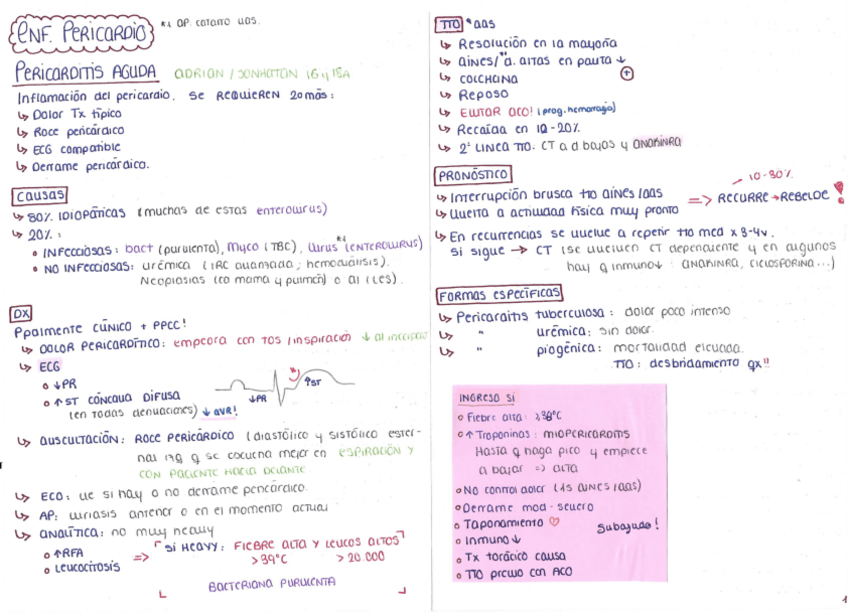 ENF. PERICARDIO
*1 AP. catarro VRS.
PERICARDITIS AGUDA ADRIAN / JONHATAN 16 y 15A
Inflamación del pericardio. Se REQUIEREN 2 o más:
↳ Dolor Tx típico
↳ Roce pericárdico
↳ ECG compatible
↳ Derrame pericárdico.
CAUSAS
↳ 80% IDIOPÁTICAS (muchas de estas enterovirus)
↳ 20%:
• INFECCIOSAS: bact (purulenta), Myco (TBC), Virus*1 (ENTEROVIRUS)
• NO INFECCIOSAS: urémica (IRC avanzada; hemodiálisis).
Neoplasias (ca mama y pulmón) o AI (LES).
DX
Ppalmente CLÍNICO + PPCC!
↳ DOLOR PERICARDÍTICO: empeora con TOS / inspiración ↓ al inclinarse
↳ ECG
• ↓PR
• ↑ST CÓNCAVA DIFUSA
(en todas derivaciones) ↓ AVR!
↓PR
↑ST
↳ AUSCULTACIÓN: ROCE PERICÁRDICO (diastólico y sistólico ester-
nal izq q se escucha mejor en ESPIRACIÓN Y
CON PACIENTE HACIA DELANTE
↳ ECO: ve si hay o no derrame pericárdico.
↳ AP: viriasis anterior o en el momento actual
↳ ANALÍTICA: no muy heavy
• ↑RFA
• Leucocitosis
=> SI HEAVY: FIEBRE ALTA Y LEUCOS ALTOS
>39°C >20.000
BACTERIANA PURULENTA
TTO *AAS
↳ Resolución en la mayoría
↳ AINES/*a. altas en pauta ↓
↳ COLCHICINA
↳ Reposo
↳ EVITAR ACO! (prog. hemorragia)
↳ Recaída en 10-20%
↳ 2ª LINEA TTO: CT a d bajas y ANAKINRA
PRONÓSTICO
10-30%
↳ Interrupción brusca tto AINES/AAS
↳ Vuelta a actividad física muy pronto
=> RECURRE → REBELDE!
↳ En recurrencias se vuelve a repetir tto med x 3-4v.
Si sigue → CT (se vuelven CT dependiente y en algunos
hay q inmuno↓: ANAKINRA, CICLOSPORINA...)
FORMAS ESPECÍFICAS
↳ Pericarditis tuberculosa: dolor poco intenso
↳ " urémica: sin dolor.
↳ " piogénica: mortalidad elevada.
TTO: desbridamiento qx!!
INGRESO SI
• Fiebre alta: >38°C
• ↑ Troponinas: MIOPERICARDITIS
Hasta q haga pico y empiece
a bajar => alta
• NO control dolor (AINES/AAS)
• Derrame mod - severo
• Taponamiento ♡
• Inmuno↓
• Tx torácico causa
• TTO previo con ACO
Subagudo!
1